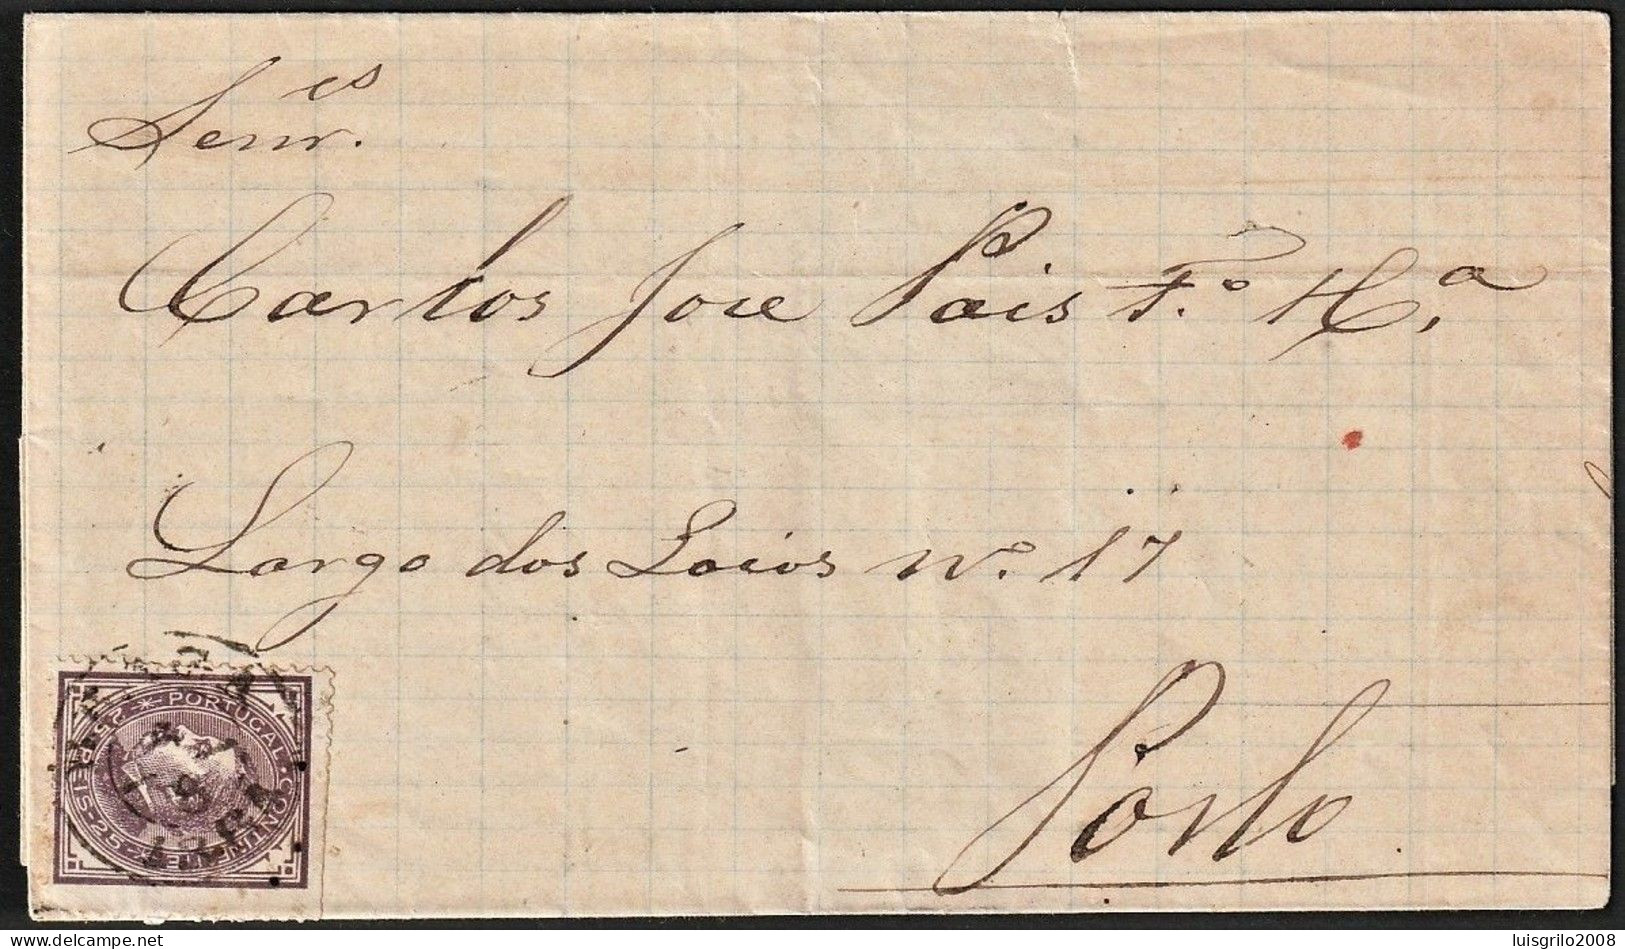 Senr.es
Carlos Jose Pais F.o H.a
Largo dos Loios No. 17
Porto
PORTUGAL
CONTINENTE
25 REIS 25
luisgrilo2008